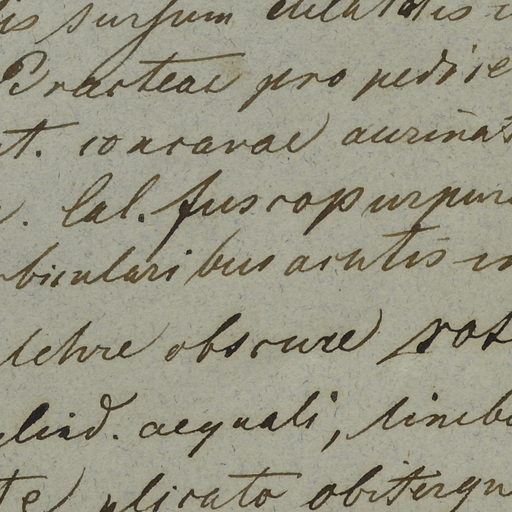 is sursum dilatatis
Bracteae pro pedice
at. concavae acumina
. Cal. fuscopurpur
rbicularibus acutis in
lchre obscure ros
ylind. aequali, limbo
te plicato obiterqu